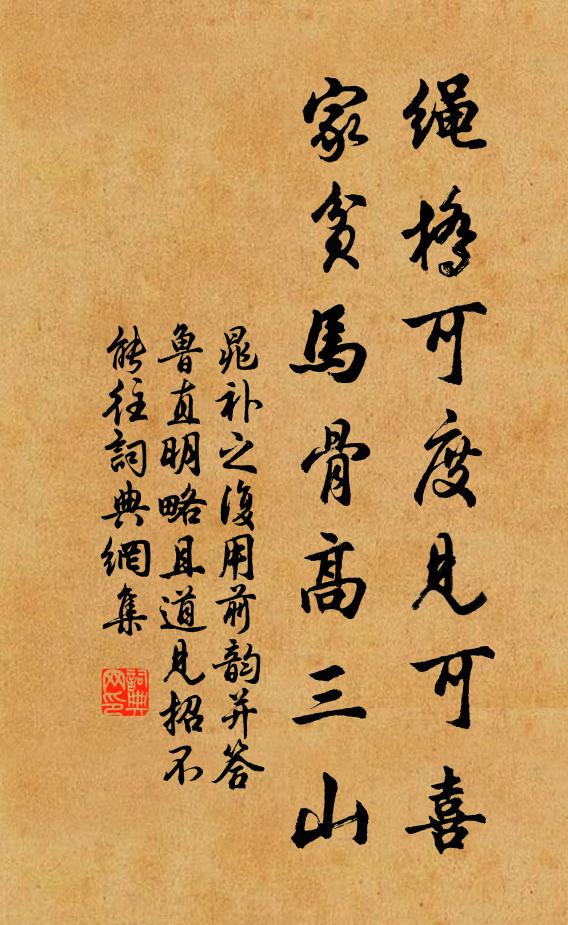 绳橋可度見可喜
家貧馬骨高三山
晁补之復用前韵并答
魯直明略且道見招不
能往詞典網集
詞典网印